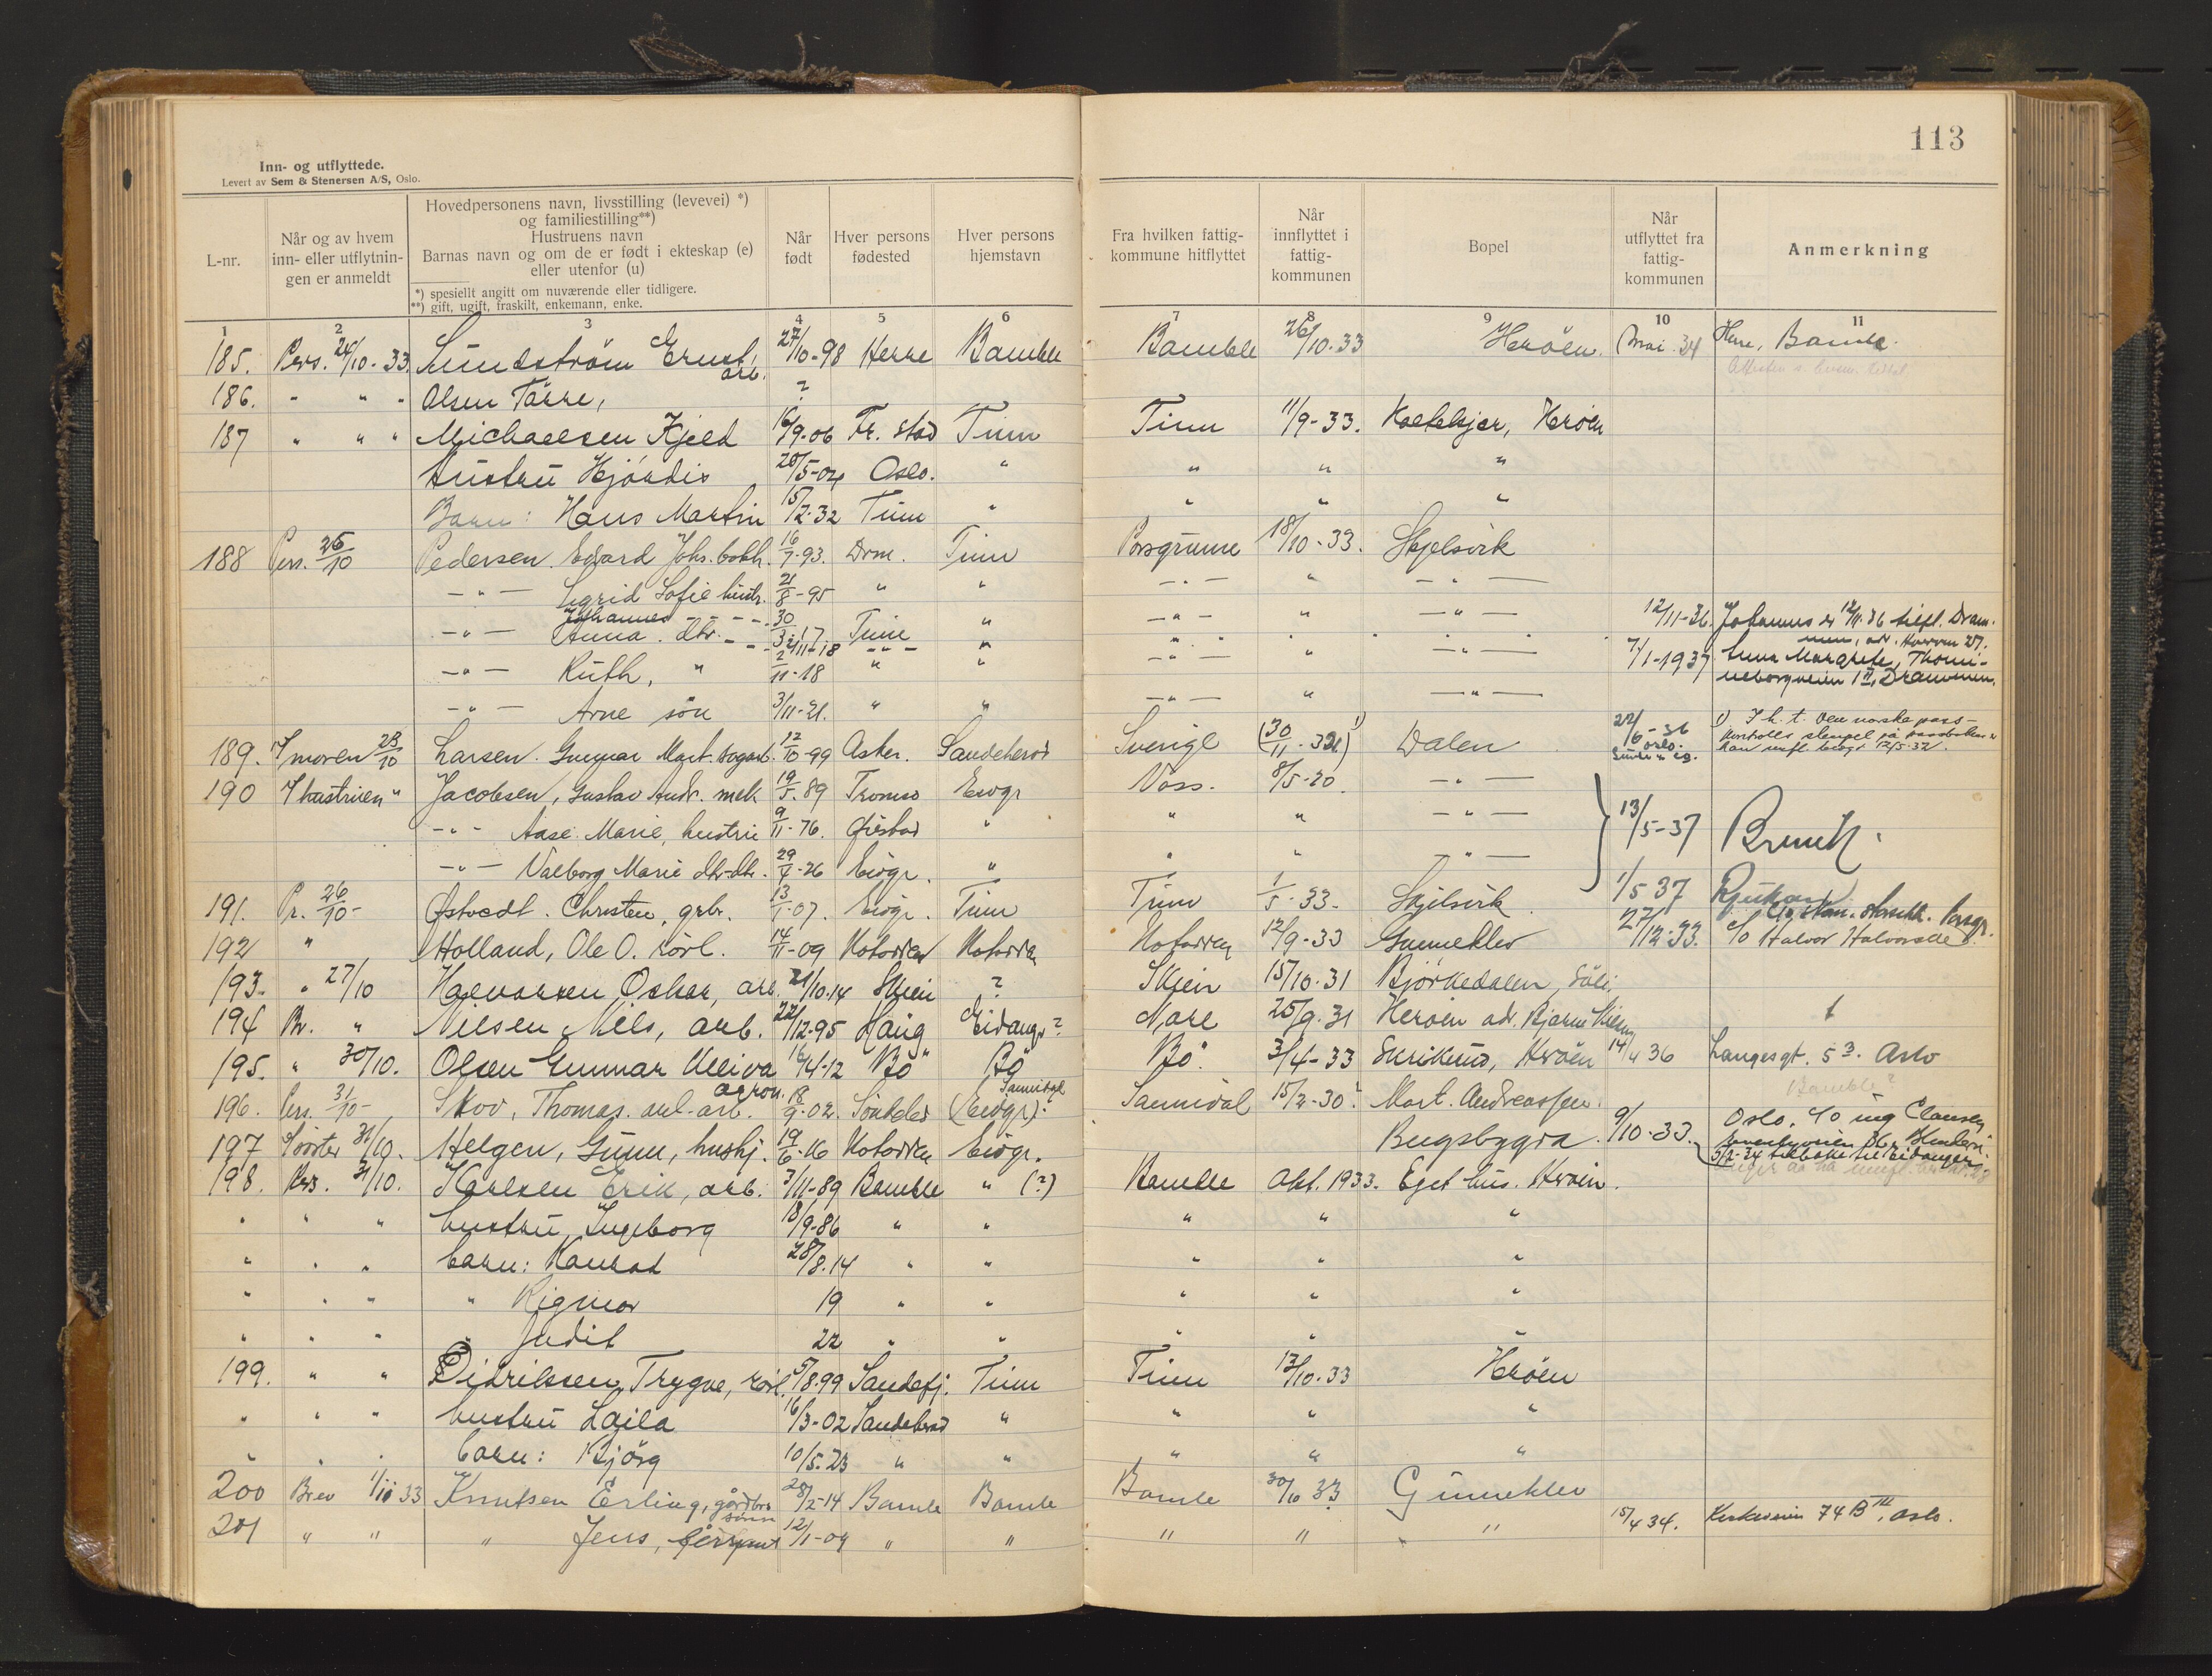 113
Inn- og utflyttede.
Levert av Sem & Stenersen A/S, Oslo.
L-nr.
Når og av hvem inn- eller utflytningen er anmeldt
Hovedpersonens navn, livsstilling (levevei) *)
og familiestilling**)
Hustruens navn
Barnas navn og om de er født i ekteskap (e)
eller utenfor (u)
*) spesiellt angitt om nuværende eller tidligere.
**) gift, ugift, fraskilt, enkemann, enke.
Når født
Hver persons fødested
Hver persons hjemstavn
Fra hvilken fattigkommune hitflyttet
Når innflyttet i fattigkommunen
Bopel
Når utflyttet fra fattigkommunen
Anmerkning
1 2 3 4 5 6 7 8 9 10 11
185. Pers. 24/10-33. Lundström Ernst, arb. 27/10-98 Herre Bamble Bamble 26/10.33 Herøen. Mai 34 Herre, Bamle.
186. " " " Olsen Tärre, ?
187 " " " Michaelsen Kjeld 16/9-06 Fr. stad Tinn Tinn 11/9-33. Herøen
Hustru Hjördis 20/5-04 Oslo. " " " "
Barn: Hans Martin 15/2-32 Tinn " " " "
188 Pers. 25/10 Pedersen. Edvard Johs. bokh. 16/7-93. Drm. Tinn Porsgrunn 18/10-33. Skjelsvik
-"- Sigrid Sofie hustr. 21/8-95 " " -"- " -"-
Johannes 30/3-17
-"- Anna. dtr. 2/11-18 Tinn " -"- " -"- 12/11-36. Johannes 12/11-36 utfl. Drammen, Havnen 27.
-"- Ruth, " 2/11-18 " " -"- " -"- 7/1-1937 Anna Margrete, Thornieborgveien 1 II, Drammen.
-"- Arne sön 3/11-21. " " -"- " -"-
189. I moren 23/10 Larsen. Gunnar Mart. 12/10-99 Asker. Sandeherad Sverige (30/11-32) 1) Dalen 22/6-36 Oslo. 1) I h. t. den norske passkontrolls stempel på passboken
190 I hustruen " Jacobsen, Gustav Andr. mek 19/5-89 Tromsø Eidgr Voss. 8/5-20. -"-
-"- Aase Marie, hustru 9/11-76. " " " -"- 13/5-37 Brevik.
-"- Valborg Marie 29/4-26 Eidgr. " " " -"-
191. Pr. 26/10- Østvedt. Christen, grbr. 13/1-07. Eidgr. Tinn Tinn 1/5-33. Skjelsvik 1/5 37 Rjukan
192 " Holland, Ole O. rörl. 14/11-09 Notodden Notodden Notodden 12/9-33 Gunneklev 27/12-33. c/o Halvor Halvorsen
193. " 27/10 Halvorsen Oskar, arb. 21/10.14 Skien ? Skien 15/10.31 Bjørkedalen,
194 Br. " Nielsen Niels, arb. 22/12-95 Haug Eidanger? 25/9.31 Herøen adr. Bjarne
195. " 30/10. Olsen Gunnar Uleiva 16/4-12 Bö Bö Bö. 3/4-33 Skriksund, Herøen 14/4 36 Langesgt. 5 3. Oslo
agron.
196. Pers. 31/10- Skov, Thomas. anl-arb. 18/9-02. Söndeled (Eidgr)? Sannidal Sannidal 15/2-30? Mart. Andreassen. Bamble?
197 Søster 31/10. Helgen, Gunn, hushj. 19/6-16 Notodden Eidgr. Bugsbygda. 9/10-33. Oslo, c/o ing Clausen
5/2-34 tilbake til Eidanger
198. Pers. 31/10. Karlsen Erik, arb. 7/11-89 Bamble " (?) Bamble Okt. 1933. Eget hus. Herøen.
" " " hustru Ingeborg 18/9-86 " " " " "
" " " barn: Konrad 28/8.14 " " " " "
" " " " Rigmor 19 " " " " "
" " " " Judit 22 " " " " "
199. " " Didriksen, Trygve, rörl. 5/8.99 Sandefj. Tinn Tinn 13/10.33 Herøen
" " " hustru Laila 16/3-02 Sandeherad " " " "
" " " barn: Bjørg 10/5.23 " " " " "
200 Brev 1/11 33 Knutsen Erling, gårdbr. sønn 28/2-14 Bamle Bamle Bamle 30/10 33 Gunneklev
201 " " " Jens, 12/1-09 " " " " " 15/4 34. Kirkeveien 74 B III, Oslo.